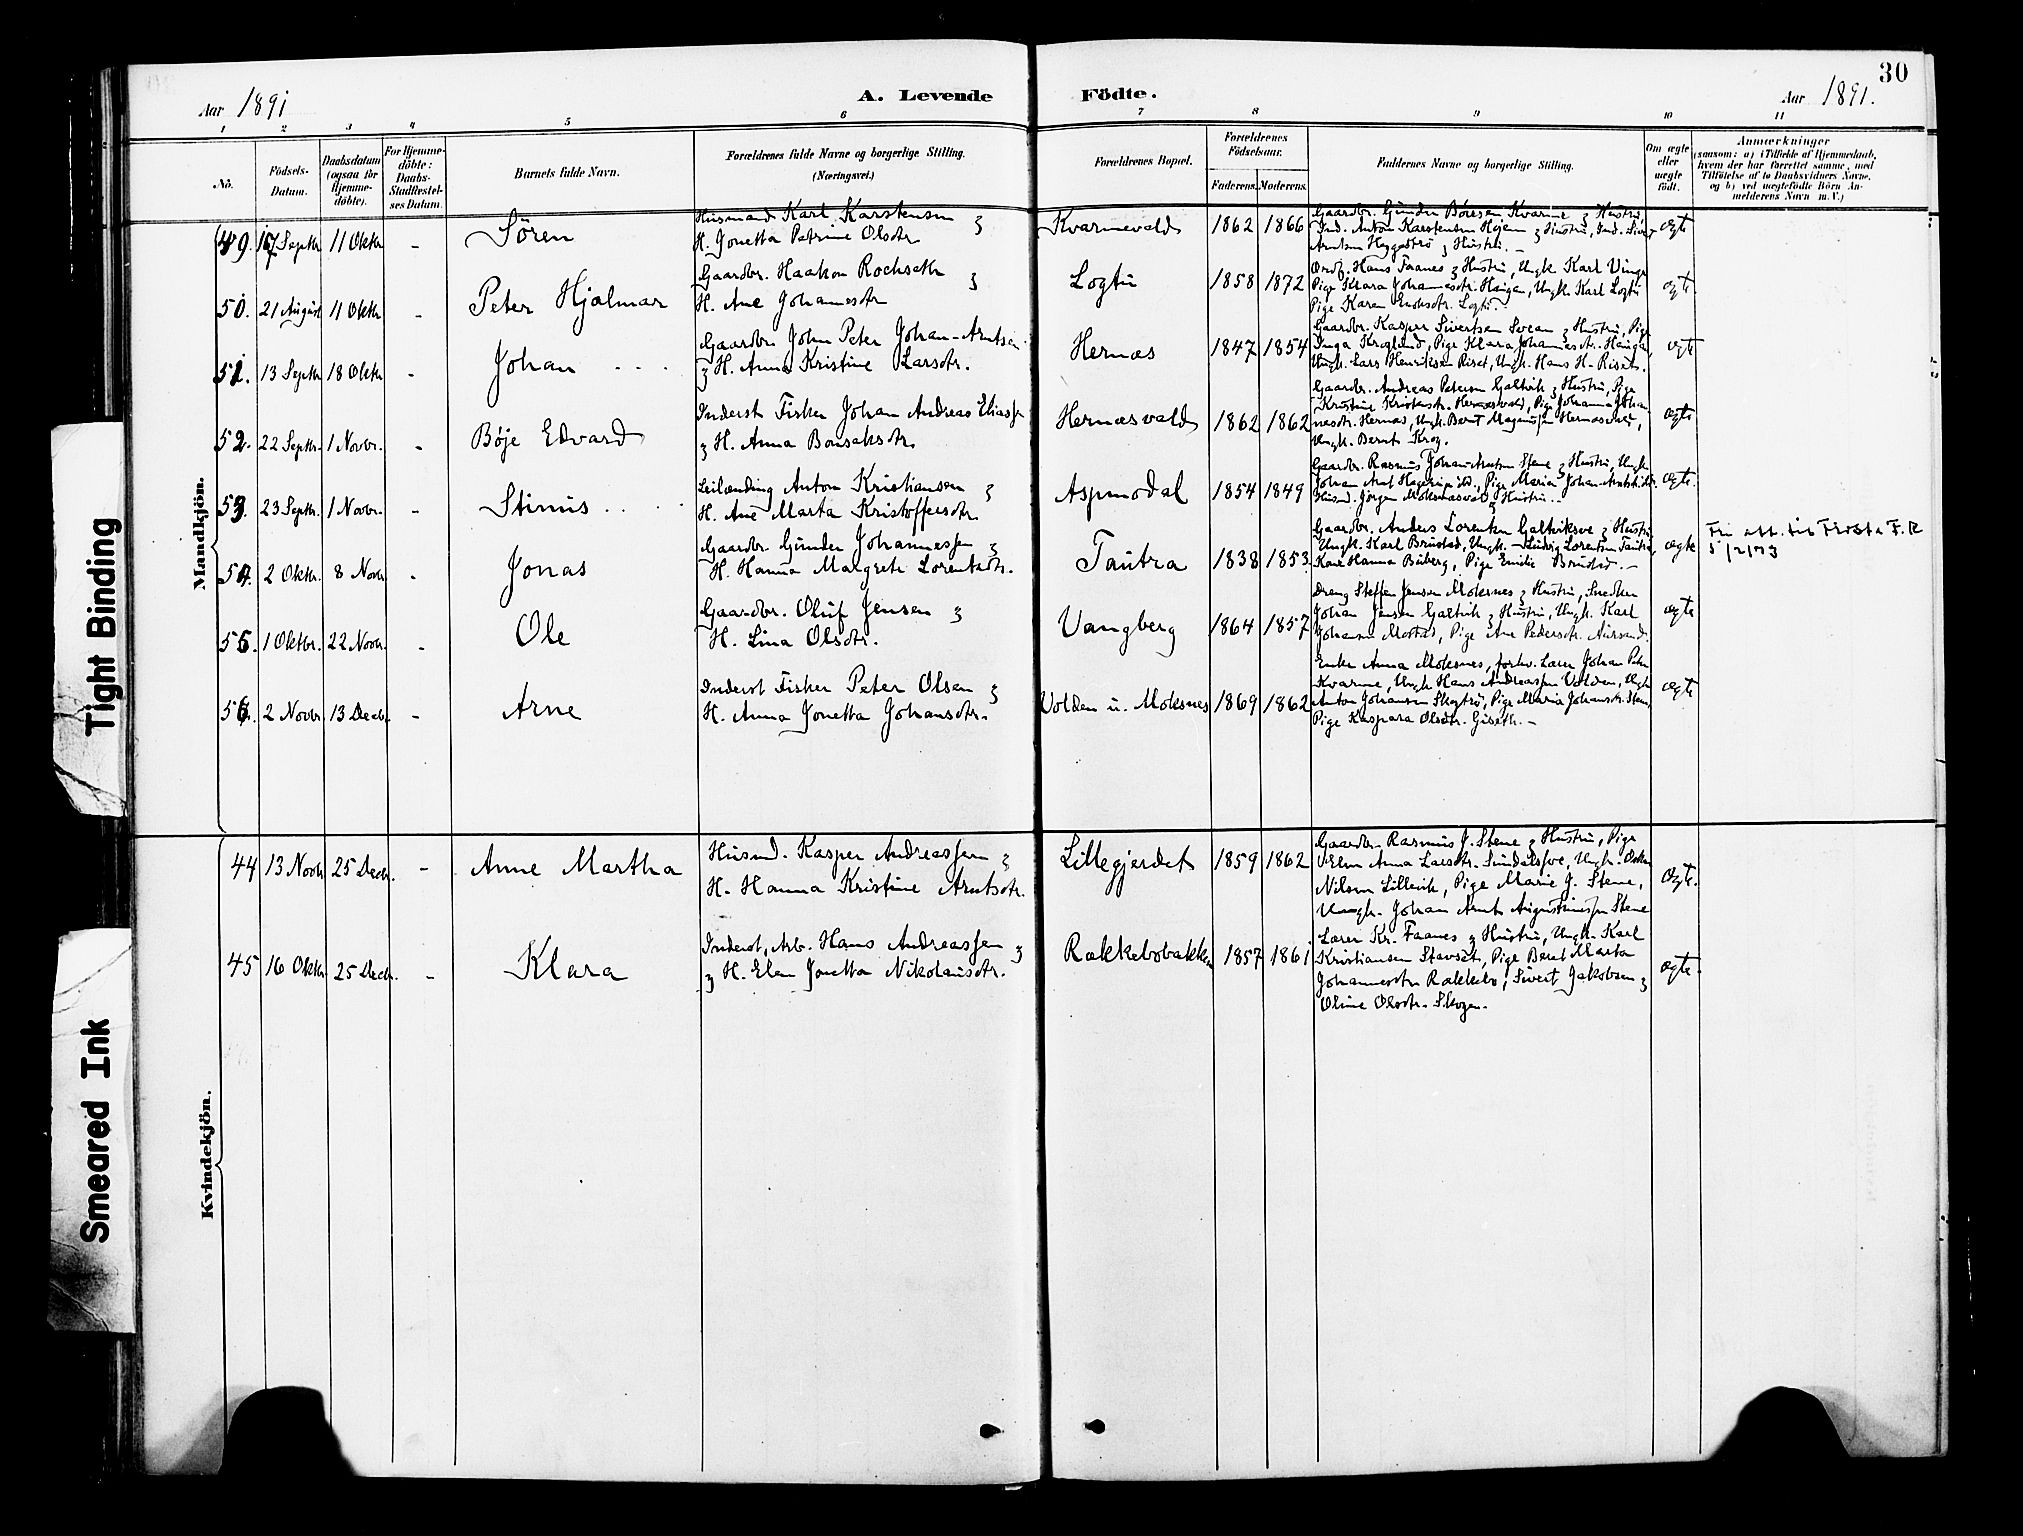 30
Aar 1891
A. Levende
Födte.
Aar 1891.
1 2 3 4 5 6 7 8 9 10 11
No.
Födsels-
Datum.
Daabsdatum
(ogsaa for
Hjemme-
döbte).
For Hjemme-
döbte:
Daabs-
Stadfæstel-
ses Datum.
Barnets fulde Navn.
Forældrenes fulde Navne og borgerlige Stilling.
(Næringsvei.)
Forældrenes Bopæl.
Forældrenes
Födselsaar.
Faderens. Moderens.
Faddernes Navne og borgerlige Stilling.
Om ægte
eller
uægte
födt.
Anmærkninger
(saasom: a) i Tilfælde af Hjemmedaab,
hvem der har forrettet samme, med
Tilföielse af to Daabsvidners Navne,
og b) ved uægtefödte Börn An-
melderens Navn m. V.)
Mandkjön.
49 17 Septbr 11 Oktbr - Sören
Husmand Karl Karstensen &
H. Jonetta Petrine Olsdtr
Kvarmevald 1862 1866
Gaardbr. Gunder Böresen Kvarme & Hustru,
Ind. Anton Karstensen Hojem & Hustru, Ind. Sivert
Arntsen Heggeströ & Hustru. -
ægte
50. 21 August 11 Oktbr - Peter Hjalmar
Gaardbr. Haakon Rochseth &
H. Ane Johannesdtr
Logtu 1858 1872
Ordf. Hans Faanes & Hustru, Ungk. Karl Vinge
Pige Klara Johannesdtr. Haugan, Ungk. Karl Logtu
Pige Karen Enoksdtr. Logtu. -
ægte
51. 13 Septbr 18 Oktbr - Johan
Gaardbr. John Peter Johan-Arntsen
& H. Anna Kristine Larsdtr.
Hernæs 1847 1854
Gaardbr. Kasper Sivertsen Svean & Hustru, Pige
Inga Kroglund, Pige Klara Johannesdtr. Haugan,
Ungk. Lars Henriksen Riset, Ungk. Hans H. Riset.
ægte
52. 22 Septbr. 1 Novbr. - Böje Edvard
Inderst Fisker Johan Andreas Eliassen
& H. Anna Bonsaksdtr.
Hernæsvald 1862 1862
Gaardbr. Andreas Petersen Galtvik & Hustru, Pige
Kristine Kristensdtr. Hernæsvald, Pige Johanna Johan-
nesdtr. Hernæs, Ungk. Bernt Magnussen Hernæs
Ungk. Bernt Krog.
ægte
53. 23 Septbr. 1 Novbr. - Stinus
Leilænding Anton Kristiansen &
H. Ane Marta Kristoffersdtr.
Aspmodal 1854 1849
Gaardbr. Rasmus Johan-Arntsen Stene & Hustru, Ungk
Johan Arnt, Pige Maria Johan-Arntsdtr.
Husmd. Jörgen Moksnæsvald & Hustru. -
ægte.
54. 2 Oktbr. 8 Novbr - Jonas
Gaardbr. Gunder Johannessen &
H. Hanna Margrete Lorentsdtr.
Tautra 1838 1853.
Gaardbr. Anders Lorentsen Galtviksve & Hustru
Ungk. Karl Brustad, Ungk. Ludvig Lorentsen Tautra,
Kone Hanna Buberg, Pige Emilie Brustad. -
ægte
Fri att. til Frosta F.R
5/2/73
55. 1 Oktbr. 22 Novbr. - Ole
Gaardbr. Oluf Jensen &
H. Lina Olsdtr.
Vangberg 1864 1857
Dreng Steffen Jensen Moksnes & Hustru, Snedker
Johan Jensen Galtvik & Hustru, Ungk. Karl
Johansen, Pige Ane Pedersdtr. Aursand.
ægte
56. 2 Novbr 13 Decbr. - Arne
Inderst Fisker Peter Olsen &
H. Anna Jonetta Johansdtr.
Volden u. Moksnes 1869 1862
Enke Anna Moksnes, forhv. Lærer Johan Peter
Kvarme, Ungk Hans Andreassen Volden, Ungk
Anton Johansen Skogtrö, Pige Maria Johansdtr. Stene,
Pige Kaspara Olsdtr. Giseth. -
ægte
Kvindekjön.
44 13 Novbr 25 Decbr. - Anne Martha
Husmd. Kasper Andreassen &
H. Hanna Kristine Arntsdtr.
Lillegjerdet 1859 1862
Gaardbr. Rasmus J. Stene & Hustru, Pige
Elen Anna Larsdtr., Ungk. Oskar
Nilsen Lillevik, Pige Marie J. Stene,
Ungk. Johan Arnt Augustinussen Stene
Ægte.
45 16 Oktbr. 25 Decbr. - Klara
Inderst, Arb. Hans Andreassen &
& H. Elen Jonetta Nikolausdtr.
Rækkebobakken 1857 1861
Lærer Kr. Faanes & Hustru, Ungk. Karl
Kristiansen Stavset, Pige Beret Marta
Johannesdtr Rækkebo, Sivert Jakobsen &
Oline Olsdtr. Skogen.
ægte.
Tight Binding
Smeared Ink